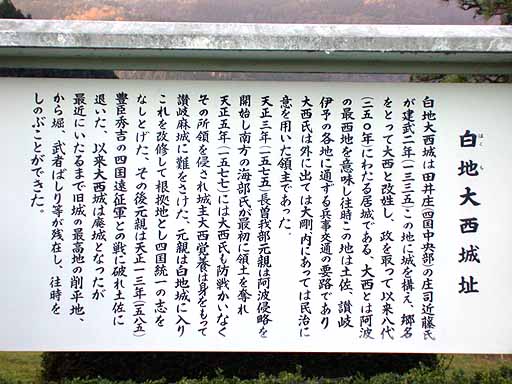 白地大西城址
はくち
白地大西城は田井庄(四国中央部)の庄司近藤氏
が建武二年(一三三五)この地に城を構え、郷名
をとって大西と改姓し、政を取って以来八代
(二五〇年)にわたる居城である、大西とは阿波
の最西地を意味し往時この地は土佐、讃岐
伊予の各地に通ずる兵事交通の要路であり
大西氏は外に出ては大剛内にあっては民治に
意を用いた領主であった。
天正三年(一五七五)長曽我部元親は阿波侵略を
開始し南方の海部氏が最初に領土を奪れ
天正五年(一五七七)には大西氏も防戦かいなく
その所領を侵され城主大西覚養は身をもって
讃岐麻城に難をさけた、元親は白地城に入り
これを改修して根拠地とし四国統一の志を
なしとげた、その後元親は天正一三年(一五八五)
豊臣秀吉の四国遠征軍との戦に破れ土佐に
退いた、以来大西城は廃城となったが
最近にいたるまで旧城の最高地の削平地、
から堀、武者ばしり等が残在し、往時を
しのぶことができた。